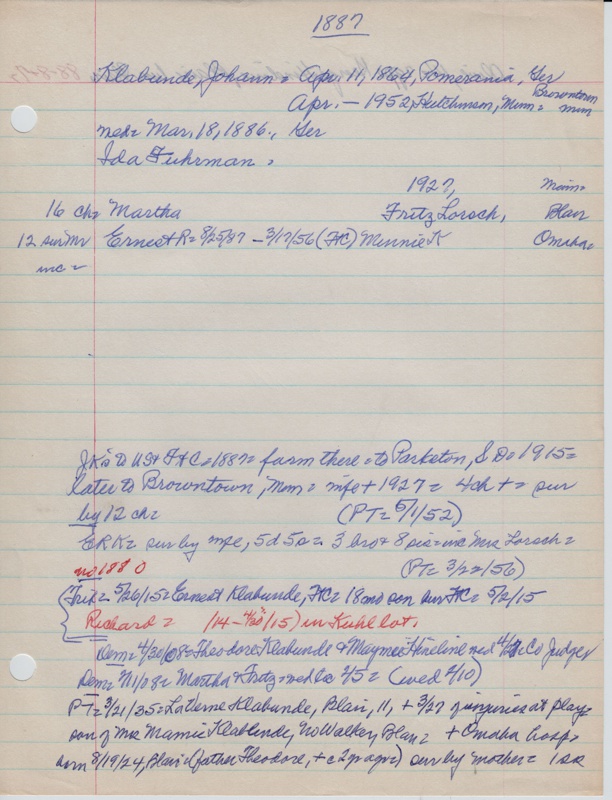 1887
Klabunde, Johann = Apr. 11, 1864, Pomerania, Ger
Apr. — 1952, Hutchinson, Minn = Browntown minn
med = Mar. 18, 1886, Ger
Ida Fuhrman.
1927,
16 ch = Martha Fritz Lorsch, Blair
12 sur Mr Ernest R = 8/25/87 — 3/17/56 (FtC) Minnie K Omaha.
inc =
JK is to US & FtC = 1887 = farm there = to Parkston, S D = 1915 =
later to Browntown, Minn = wife + 1927 = 4 ch + = sur
by 12 ch = (PT = 5/1/52)
ERK = sur by wife, 5 d 5 s = 3 bro & 8 sis = inc Mrs Lorsch =
no 1880 (PT = 3/22/56)
Trib = 5/26/15 = Ernest Klabunde, FtC = 18 mo son bur FtC = 5/2/15
Richard = /14 - 4/30/15) in Kuhl lot.
Dem = 4/20/08 = Theodore Klabunde & Maymee med 4/ Co Judge
Dem = = Martha & Fritz = med lic 2/5 = (wed 2/10)
PT = 3/21/35 = LaVerne Klabunde, Blair, 11, + 3/27 of injuries at play =
son of Mrs Mamie Klabunde, No Walker, Blair = + Omaha hosp =
born 8/19/24, Blair = (father Theodore, + c 2 yr ago =) sur by mother = 1 sis